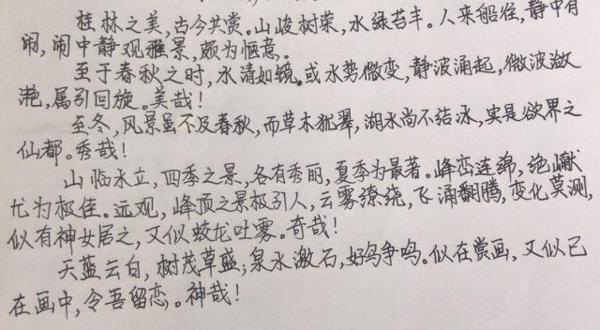 桂林之美,古今共赏。山峻树荣,水绿苔丰。人来船往,静中有
闹,闹中静观雅景,颇为惬意。
至于春秋之时,水清如镜。或水势微变,静波涌起,微波潋
滟,属引回旋。美哉!
至冬,风景虽不及春秋,而草木犹翠,湖水尚不结冰,实是欲界之
仙都。秀哉!
山临水立,四季之景,各有秀丽,夏季为最著。峰峦连绵,绝巘
尤为极佳。远观,峰顶之景极引人,云雾缭绕,飞涌翻腾,变化莫测,
似有神女居之,又似蛟龙吐雾。奇哉!
天蓝云白,树茂草盛;泉水激石,好鸟争鸣。似在赏画,又似已
在画中,令吾留恋。神哉!